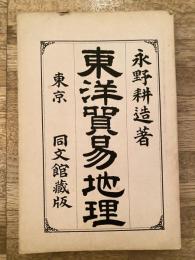 永野耕造著
東洋貿易地理
東京 同文館藏版